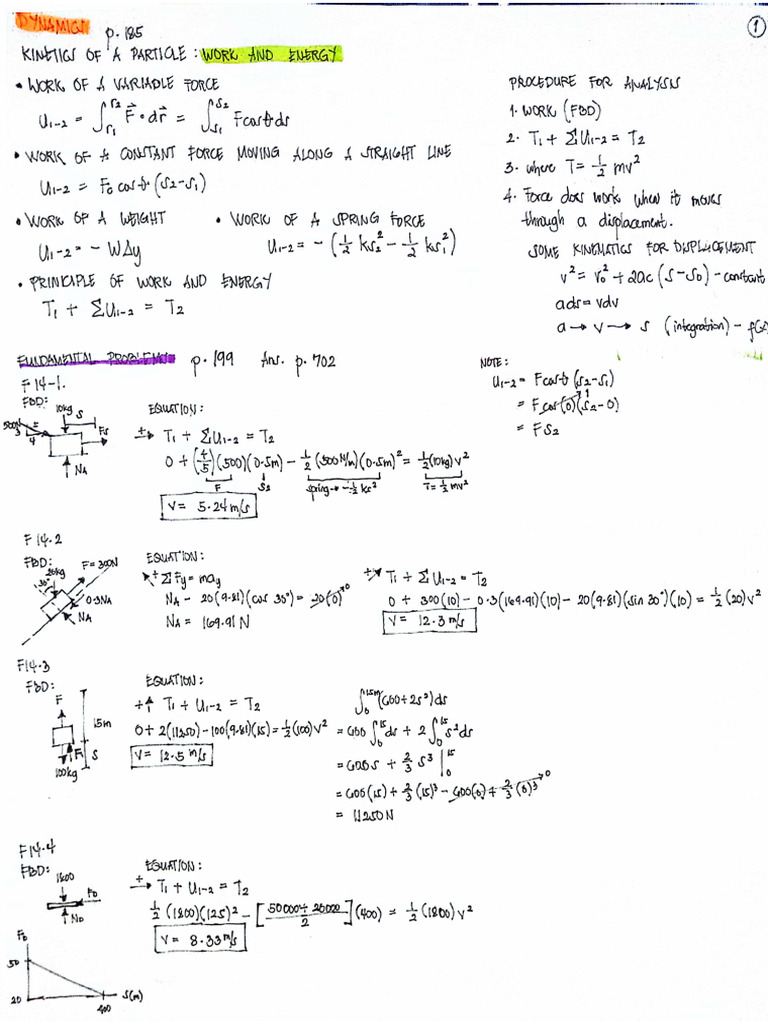 DYNAMICS p. 185
①
KINETICS OF A PARTICLE: WORK AND ENERGY
• WORK OF A VARIABLE FORCE
U₁₋₂ = ∫r₁^r₂ F⃗ • dr⃗ = ∫s₁^s₂ Fcosθds
• WORK OF A CONSTANT FORCE MOVING ALONG A STRAIGHT LINE
U₁₋₂ = F₀ cosθ (s₂-s₁)
• WORK OF A WEIGHT
U₁₋₂ = - WΔy
• WORK OF A SPRING FORCE
U₁₋₂ = - (1/2 ks₂² - 1/2 ks₁²)
• PRINCIPLE OF WORK AND ENERGY
T₁ + ΣU₁₋₂ = T₂
PROCEDURE FOR ANALYSIS
1. WORK (FBD)
2. T₁ + ΣU₁₋₂ = T₂
3. where T = 1/2 mv²
4. Force does work when it moves
through a displacement.
SOME KINEMATICS FOR DISPLACEMENT
v² = v₀² + 2ac (s-s₀) - constant
ads = vdv
a → v → s (integration) - f(s)
FUNDAMENTAL PROBLEMS p. 199 Ans. p. 702
NOTE:
U₁₋₂ = F cosθ (s₂-s₁)
= F cos(0) (s₂-0)
1
= FS₂
F14-1.
FBD:
10kg
S
500N
5
3
4
Fs
NA
EQUATION:
+→ T₁ + ΣU₁₋₂ = T₂
0 + (4/5)(500)(0.5m) - 1/2 (300N/m)(0.5m)² = 1/2 (10kg) v²
F
S₂
spring → -1/2 ks²
T = 1/2 mv²
V = 5.24 m/s
F14.2
FBD:
20kg
30°
F = 300N
0.3NA
NA
EQUATION:
↖+ ΣFy = may
NA - 20(9.81)(cos 30°) = 20(0) 0
NA = 169.91 N
+↗ T₁ + ΣU₁₋₂ = T₂
0 + 300(10) - 0.3(169.91)(10) - 20(9.81)(sin 30°)(10) = 1/2 (20)v²
V = 12.3 m/s
F14.3
FBD:
F
15m
S
100kg
EQUATION:
+↑ T₁ + U₁₋₂ = T₂
0 + 2(11250) - 100(9.81)(15) = 1/2 (100)v²
V = 12.5 m/s
∫₀^15m (600+2s²)ds
= 600 ∫₀^15 ds + 2 ∫₀^15 s²ds
= 600s + 2/3 s³ |₀^15
= 600(15) + 2/3 (15)³ - 600(0) + 2/3 (0)³ 0
= 11250N
F14.4
FBD:
1800
FD
ND
EQUATION:
+→ T₁ + U₁₋₂ = T₂
1/2 (1800)(125)² - [50000+20000/2](400) = 1/2 (1800)v²
V = 8.33 m/s
FD
50
20
400
S(m)